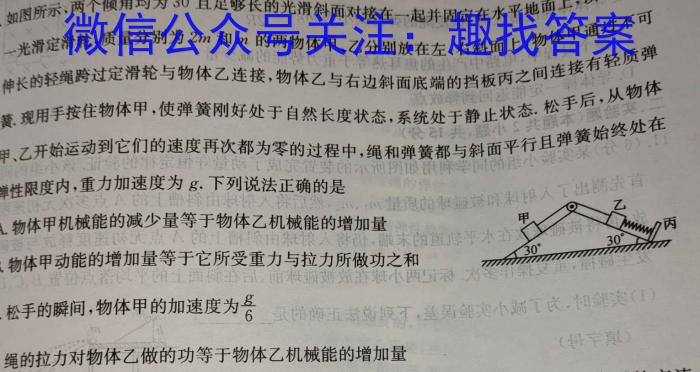 如图所示,两个倾角均为30°且足够长的光滑斜面对接在一起并固定在水平地面上,
一光滑定滑 质量分别为2m和m的两物体甲、乙分别放在左 斜面上,物体甲通过不可
微信公众号关注:趣找答案
伸长的轻绳跨过定滑轮与物体乙连接,物体乙与右边斜面底端的挡板丙之间连接有轻质弹
簧.现用手按住物体甲,使弹簧刚好处于自然长度状态,系统处于静止状态.松手后,从物体
甲、乙开始运动到它们的速度再次都为零的过程中,绳和弹簧都与斜面平行且弹簧始终处在
弹性限度内,重力加速度为g.下列说法正确的是
A.物体甲机械能的减少量等于物体乙机械能的增加量
.物体甲动能的增加量等于它所受重力与拉力所做功之和
.松手的瞬间,物体甲的加速度为g/6
绳的拉力对物体乙做的功等于物体乙机械能的增加量
甲 乙 丙
30° 30°